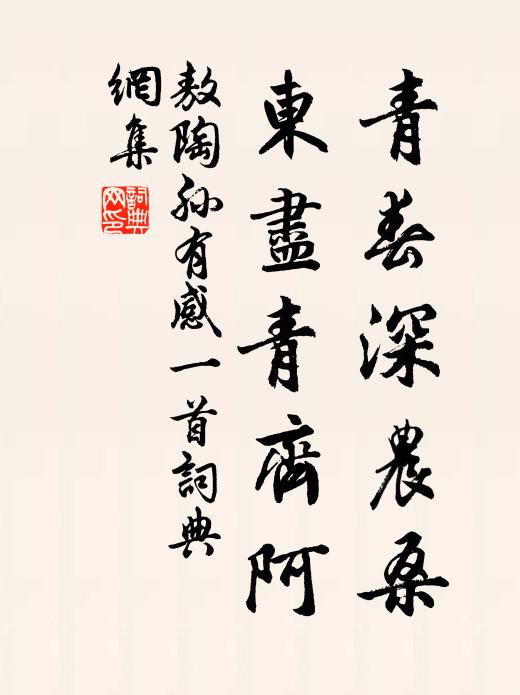 青春深農桑
東盡青齊阿
敖陶孙有感一首詞典
網集
詞典
网印